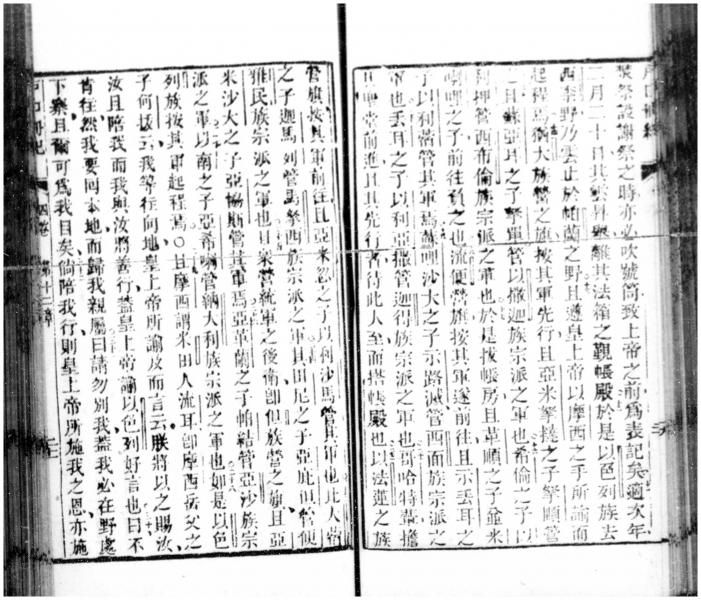 獎祭設謝祭之時亦必吹號筒致上帝之前爲表記矣適次年
二月二十日其雲昇離其法箱之觀帳殿於是以色列族去
西乃野乃雲止於帕蘭之野且遵皇上帝以摩西之手所諭而
起程焉大族營之旗按其軍先行且亞米撓之子拏順管
之且亞耳之子拏單管以族宗派之軍也希倫之子以
利押管西布倫族宗派之軍也於是拔帳房且革順之子並米
喇哩之子前往負之也流便營旗按其軍遂前往且示丟耳之
子以利蓿管其軍焉蘇哩沙大之子示路滅管西面族宗派之
軍也丟耳之子以利亞撒管迦得族宗派之軍也哥哈特輩擔
其聖堂前進且其先行者待此人至而搭帳殿也以法蓮之族
營旗按其軍前往且亞米忽之子以利沙馬管其軍也比人
之子迦馬列管馬拏西族宗派之軍且田尼之子亞庇但管便
雅民族宗派之軍也且眾營統軍之後衛卽但族營之旗且亞
米沙大之子亞管其軍焉亞革蘭之子帕結管亞沙族宗
派之軍以南之子亞希管納大利族宗派之軍也如是以色
列族按其軍起程焉〇且摩西謂米田人流耳卽摩西岳父之
子何撥云我等往向地皇上帝所諭及而言云朕將以之賜汝
汝且陪我而我與汝將善行蓋皇上帝諭以色列好言也曰不
肯往然我要回本地而歸我親屬曰請勿別我蓋我必在野處
下寨且爾可爲我目矣倘陪我行則皇上帝所施我之恩亦施
戶口冊紀
四卷
第十二章